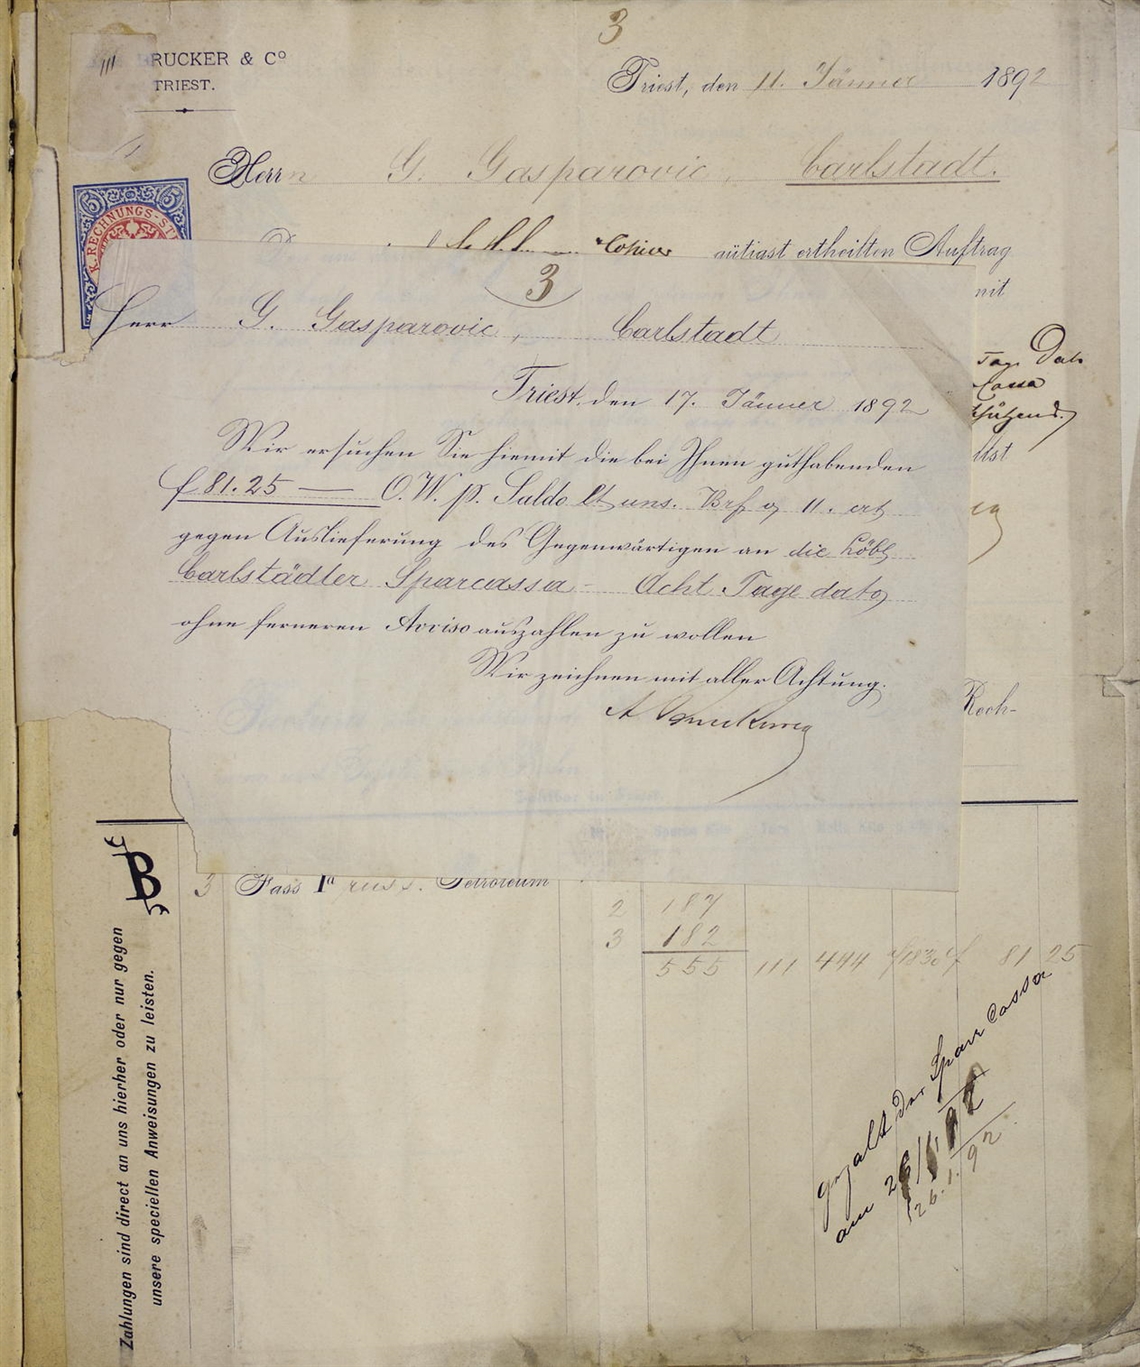 3
BRUCKER & Co
TRIEST.
Triest, den 11. Jänner 1892
Herrn G. Gasparovic, Carlstadt.
5 5
K. RECHNUNGS-ST
gütigst ertheilten Auftrag
mit
3
Herr G. Gasparovic, Carlstadt
Tage Dato
Cassa
Triest, den 17. Jänner 1892
Wir ersuchen Sie hiemit die bei Ihnen guthabenden
f 81.25 — O.W. p. Saldo lt uns. Brf v 11. ct
gegen Auslieferung des Gegenwärtigen an die Löbl
Carlstädter Sparcassa - Acht Tage dato
ohne ferneren Avviso auszahlen zu wollen
Wir zeichnen mit aller Achtung.
Rech-
B
3 Fass Ia russ. Petroleum
2 187
3 182
555 111 444 81 25
gezalt der Sparr Cassa
am 26/1 92
26.1.92
Zahlungen sind direct an uns hierher oder nur gegen
unsere speciellen Anweisungen zu leisten.